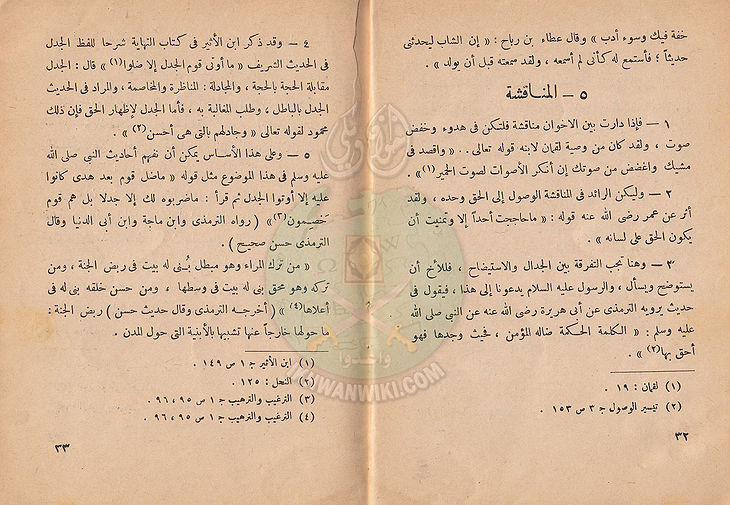 خفة فيك وسوء أدب » وقال عطاء بن رباح : « إن الشاب ليحدثنى
حديثاً ؛ فأستمع له كأنى لم أسمعه ، ولقد سمعته قبل أن يولد » .
٥ ــ المناقشة
١ ــ فإذا دارت بين الاخوان مناقشة فلتكن فى هدوء وخفض
صوت ، ولقد كان من وصية لقمان لابنه قوله تعالى .. « واقصد فى
مشيك واغضض من صوتك إن أنكر الأصوات لصوت الحمير (١) » .
٢ ــ وليكن الرائد فى المناقشة الوصول إلى الحق وحده ، ولقد
أثر عن عمر رضى الله عنه قوله : « ماحاججت أحداً إلا وتمنيت أن
يكون الحق على لسانه » .
٣ ــ وهنا تجب التفرقة بين الجدال والاستيضاح ، فللأخ أن
يستوضح ويسأل ، والرسول عليه السلام يدعونا إلى هذا ، فيقول فى
حديث يرويه الترمذى عن أبى هريرة رضى الله عنه عن النبى صلى الله
عليه وسلم : « الكلمة الحكمة ضاله المؤمن ، فحيث وجدها فهو
أحق بها (٢) » .
(١) لقمان : ١٩ .
(٢) تيسير الوصول ج ٣ ص ١٥٣ .
٣٢
٤ ــ وقد ذكر ابن الأثير فى كتاب النهاية شرحا للفظ الجدل
فى الحديث الشريف « ما أوتى قوم الجدل إلا ضلوا (١) » قال : الجدل
مقابلة الحجة بالحجة ، والمجادلة : المناظرة والمخاصمة ، والمراد فى الحديث
الجدل بالباطل ، وطلب المغالبة به ، فأما الجدل لإظهار الحق فإن ذلك
محمود لقوله تعالى « وجادلهم بالتى هى أحسن (٢) » .
٥ ــ وعلى هذا الأساس يمكن أن نفهم أحاديث النبى صلى الله
عليه وسلم فى هذا الموضوع مثل قوله « ماضل قوم بعد هدى كانوا
عليه إلا أوتوا الجدل ثم قرأ : ماضربوه لك إلا جدلا بل هم قوم
خَصِمون (٣) » ( رواه الترمذى وابن ماجة وابن أبى الدنيا وقال
الترمذى حسن صحيح ) .
« من ترك المراء وهو مبطل بُنى له بيت فى ربض الجنة ، ومن
تركه وهو محق بنى له بيت فى وسطها ، ومن حسن خلقه بنى له فى
أعلاها (٤) » ( أخرجه الترمذى وقال حديث حسن ) ربض الجنة :
ما حولها خارجاً عنها تشبيها بالأبنية التى حول المدن .
(١) ابن الأثير ج ١ ص ١٤٩ .
(٢) النحل : ١٢٥ .
(٣) الترغيب والترهيب ج ١ ص ٩٥ ، ٩٦ .
(٤) الترغيب والترهيب ج ١ ص ٩٥ ، ٩٦ .
٣٣
وأعدوا
IKHWANWIKI.COM